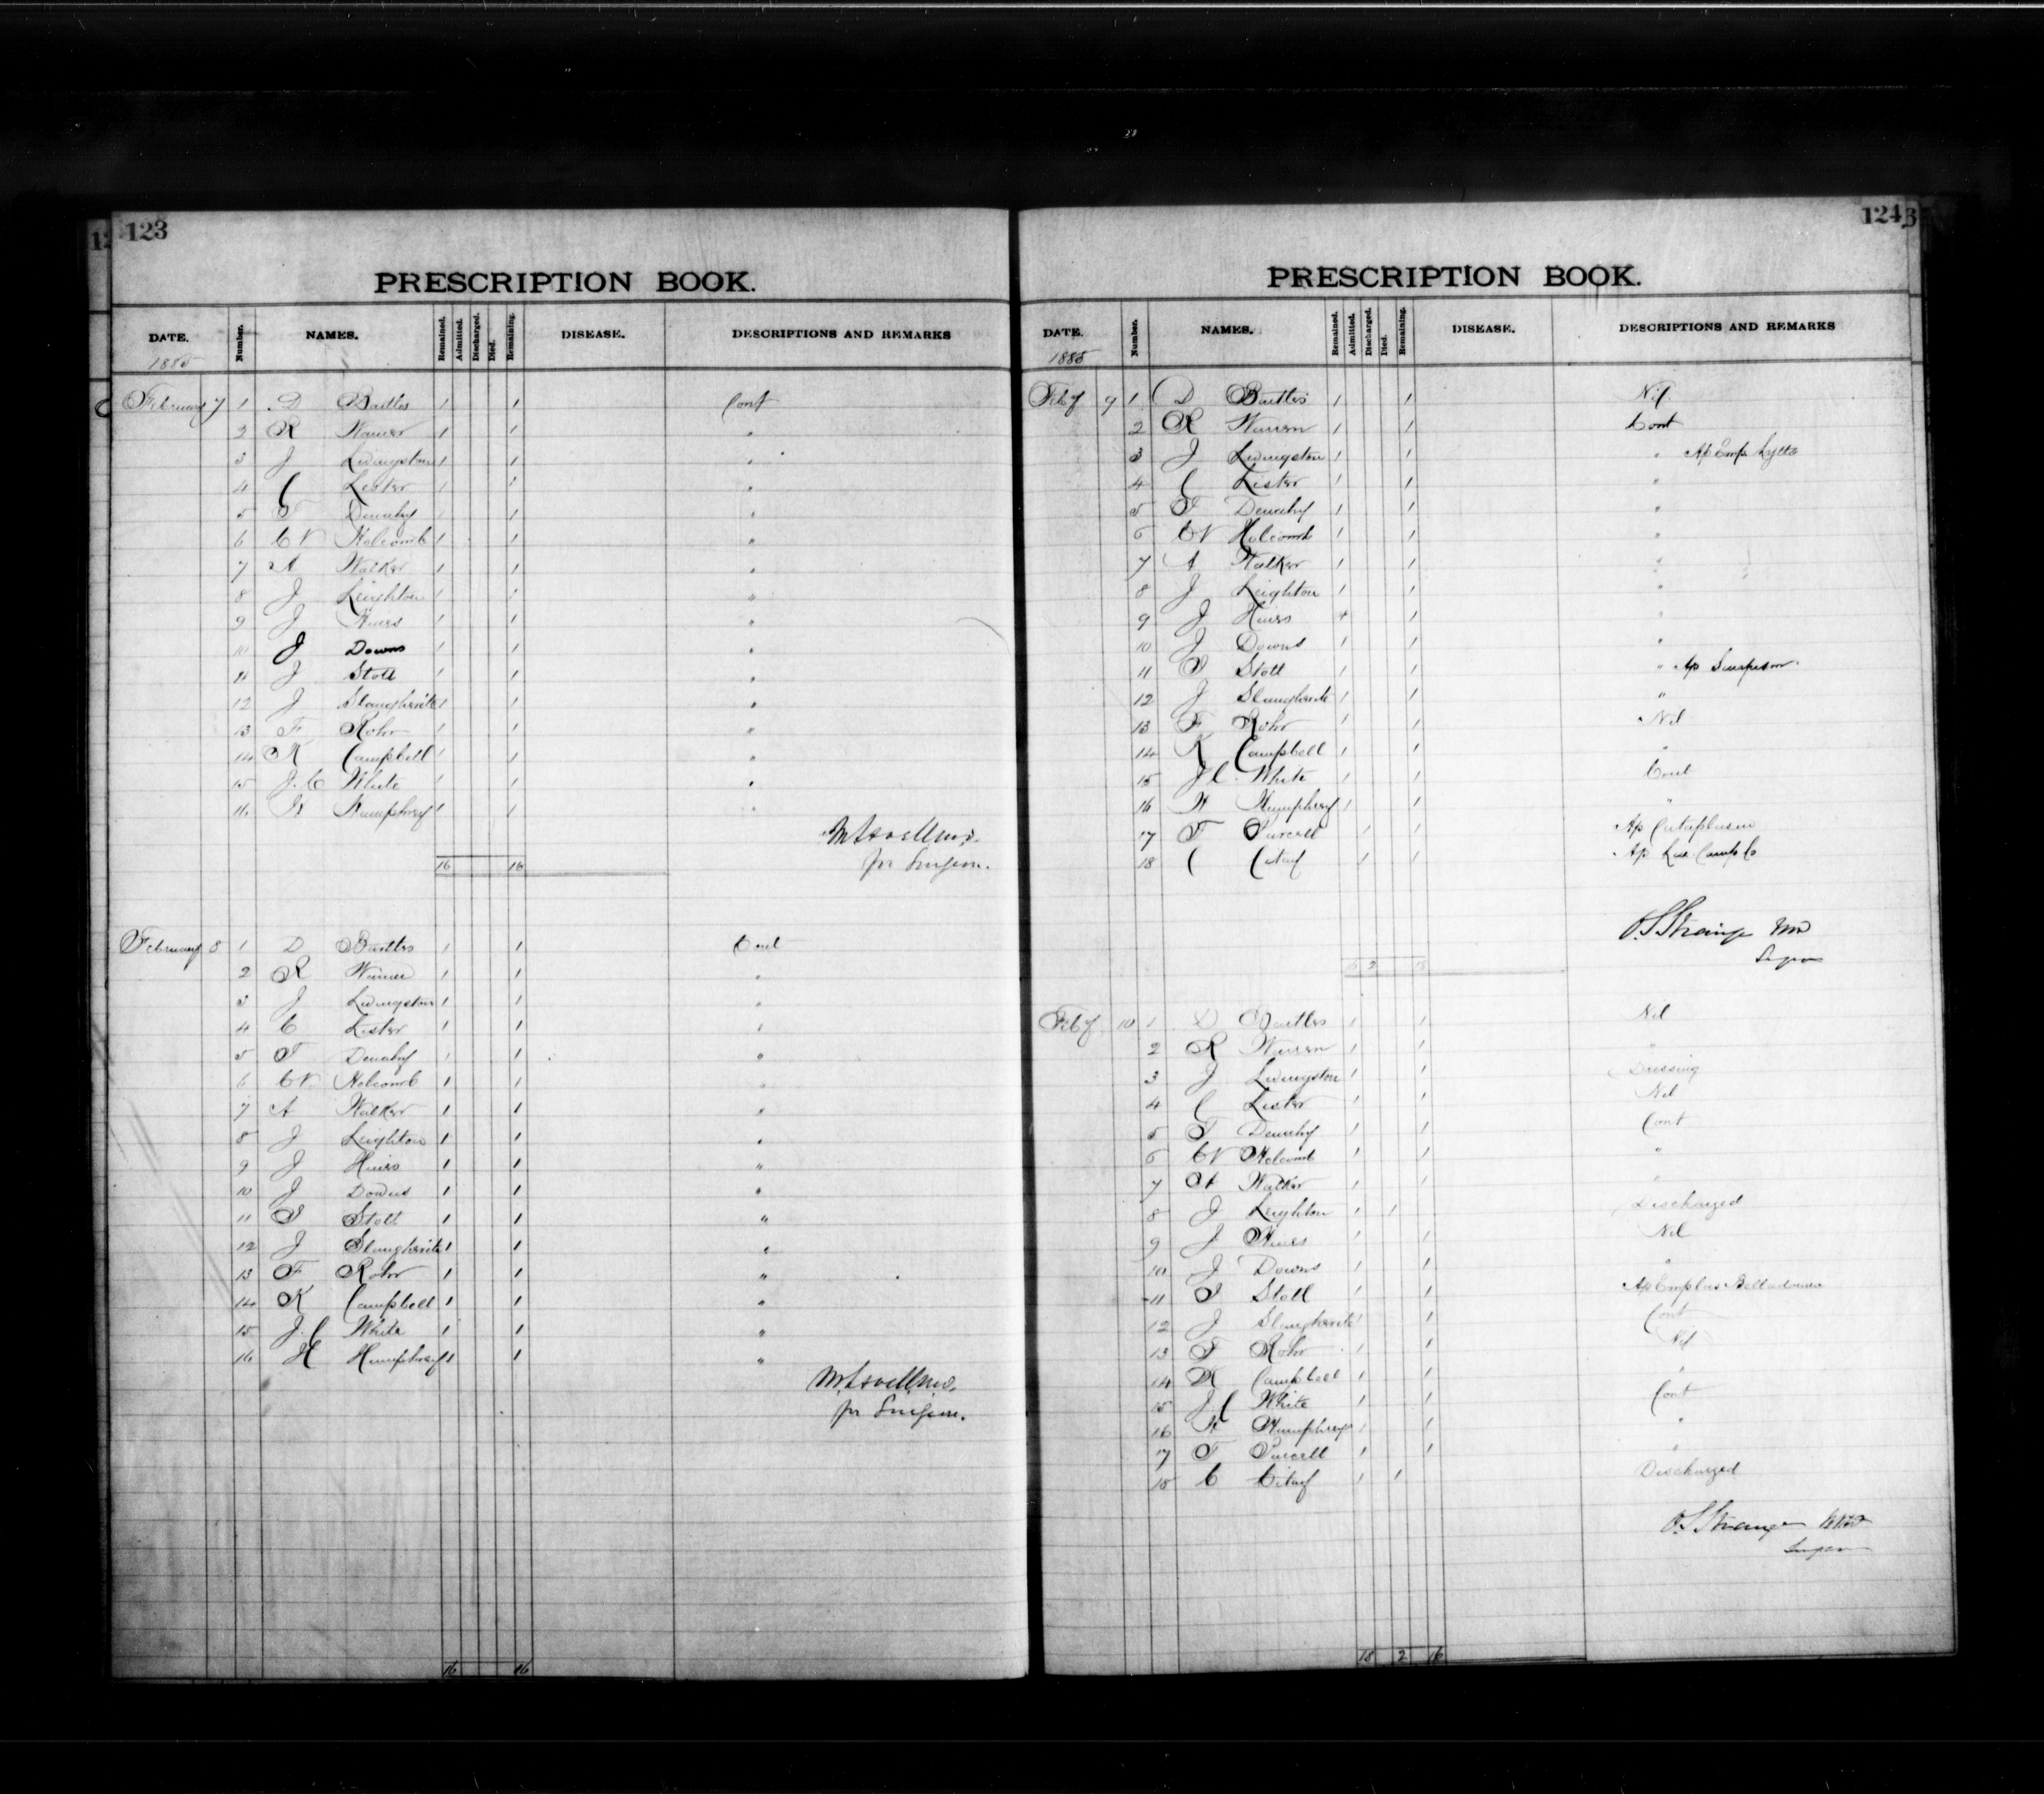 123
PRESCRIPTION BOOK.
DATE. Number. NAMES. Remained. Admitted. Discharged. Died. Remaining. DISEASE. DESCRIPTIONS AND REMARKS
1885
February 7 1 D Bartles 1 1 Cont
2 R 1 1 "
3 J Livingston 1 1 "
4 C Lester 1 1 "
5 T 1 1 "
6 CV Holcomb 1 1 "
7 A Walker 1 1 "
8 J Leighton 1 1 "
9 J 1 1 "
10 J Downs 1 1 "
11 J Stott 1 1 "
12 J 1 1 "
13 F Rohr 1 1 "
14 K Campbell 1 1 "
15 J. C White 1 1 "
16 H Humphrey 1 1 "
for Surgeon.
16 16
February 8 1 D Bartles 1 1 Cont
2 R 1 1 "
3 J Livingston 1 1 "
4 C Lister 1 1 "
5 T 1 1 "
6 CV. Holcomb 1 1 "
7 A Walker 1 1 "
8 J Leighton 1 1 "
9 J 1 1 "
10 J Downs 1 1 "
11 S Stott 1 1 "
12 J 1 1 "
13 F Rohr 1 1 "
14 K Campbell 1 1 "
15 J. C White 1 1 "
16 H Humphrey 1 1 "
for Surgeon.
16 16
124
PRESCRIPTION BOOK.
DATE. Number. NAMES. Remained. Admitted. Discharged. Died. Remaining. DISEASE. DESCRIPTIONS AND REMARKS
1885
Feby 9 1 D Bartles 1 1 Nil
2 R Warren 1 1 Cont
3 J Livingston 1 1 " Ap Emp Lytta
4 C Lister 1 1 "
5 T 1 1 "
6 CV Holcomb 1 1 "
7 A Walker 1 1 "
8 J Leighton 1 1 "
9 J 1 "
10 J Downs 1 1 "
11 S Stott 1 1 " Ap Sinapism.
12 J 1 1 "
13 F Rohr 1 1 Nil
14 K Campbell 1 1 "
15 J C. White 1 1 Cont
16 H Humphrey 1 1 "
17 T Purcell 1 1 Ap Cataplasm
18 C 1 1 Ap Camph Co
O. S Strange MD
Surgeon
16 2 18
Feby 10 1 D Bartles 1 1 Nil
2 R Warren 1 1 "
3 J Livingston 1 1 Dressing
4 C Lister 1 1 Nil
5 T 1 1 Cont
6 CV Holcomb 1 1 "
7 A Walker 1 1 "
8 J Leighton 1 1 Discharged
9 J 1 1 Nil
10 J Downs 1 1 "
11 S Stott 1 1 Ap Emplas Belladonna
12 J 1 1 Cont
13 F Rohr 1 1 Nil
14 K Campbell 1 1 "
15 J C White 1 1 Cont
16 H Humphrey 1 1 "
17 T Purcell 1 1 "
18 C 1 1 Discharged
O. S Strange MD
Surgeon
18 2 16